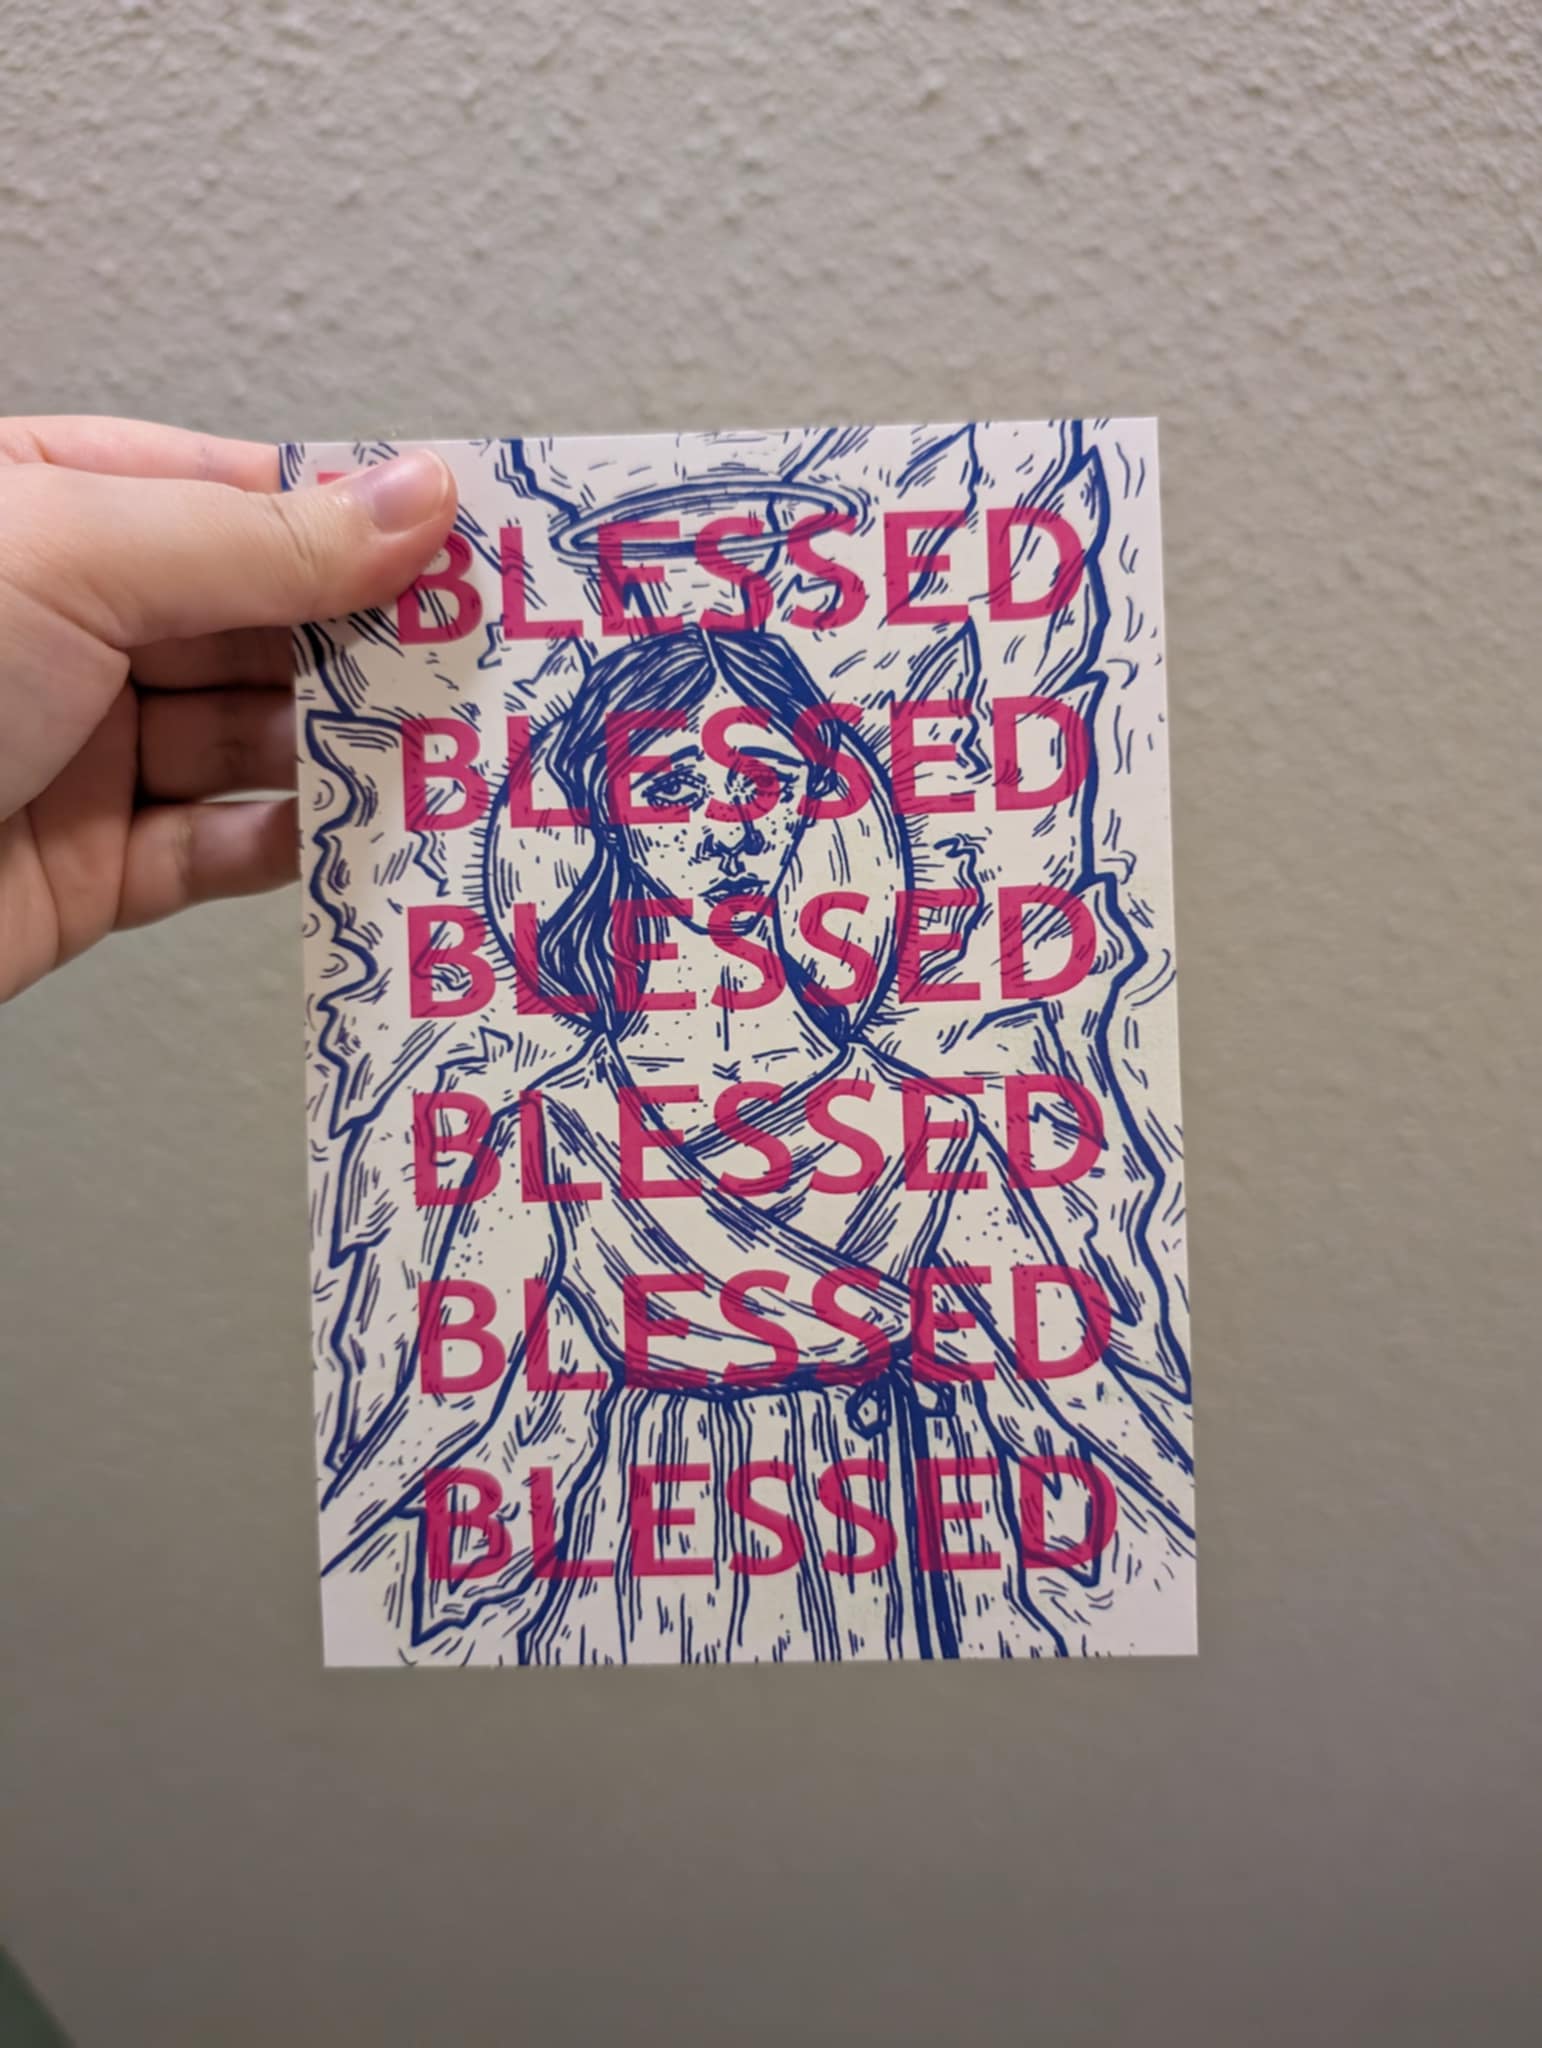 BLESSED
BLESSED
BLESSED
BLESSED
BLESSED
BLESSED